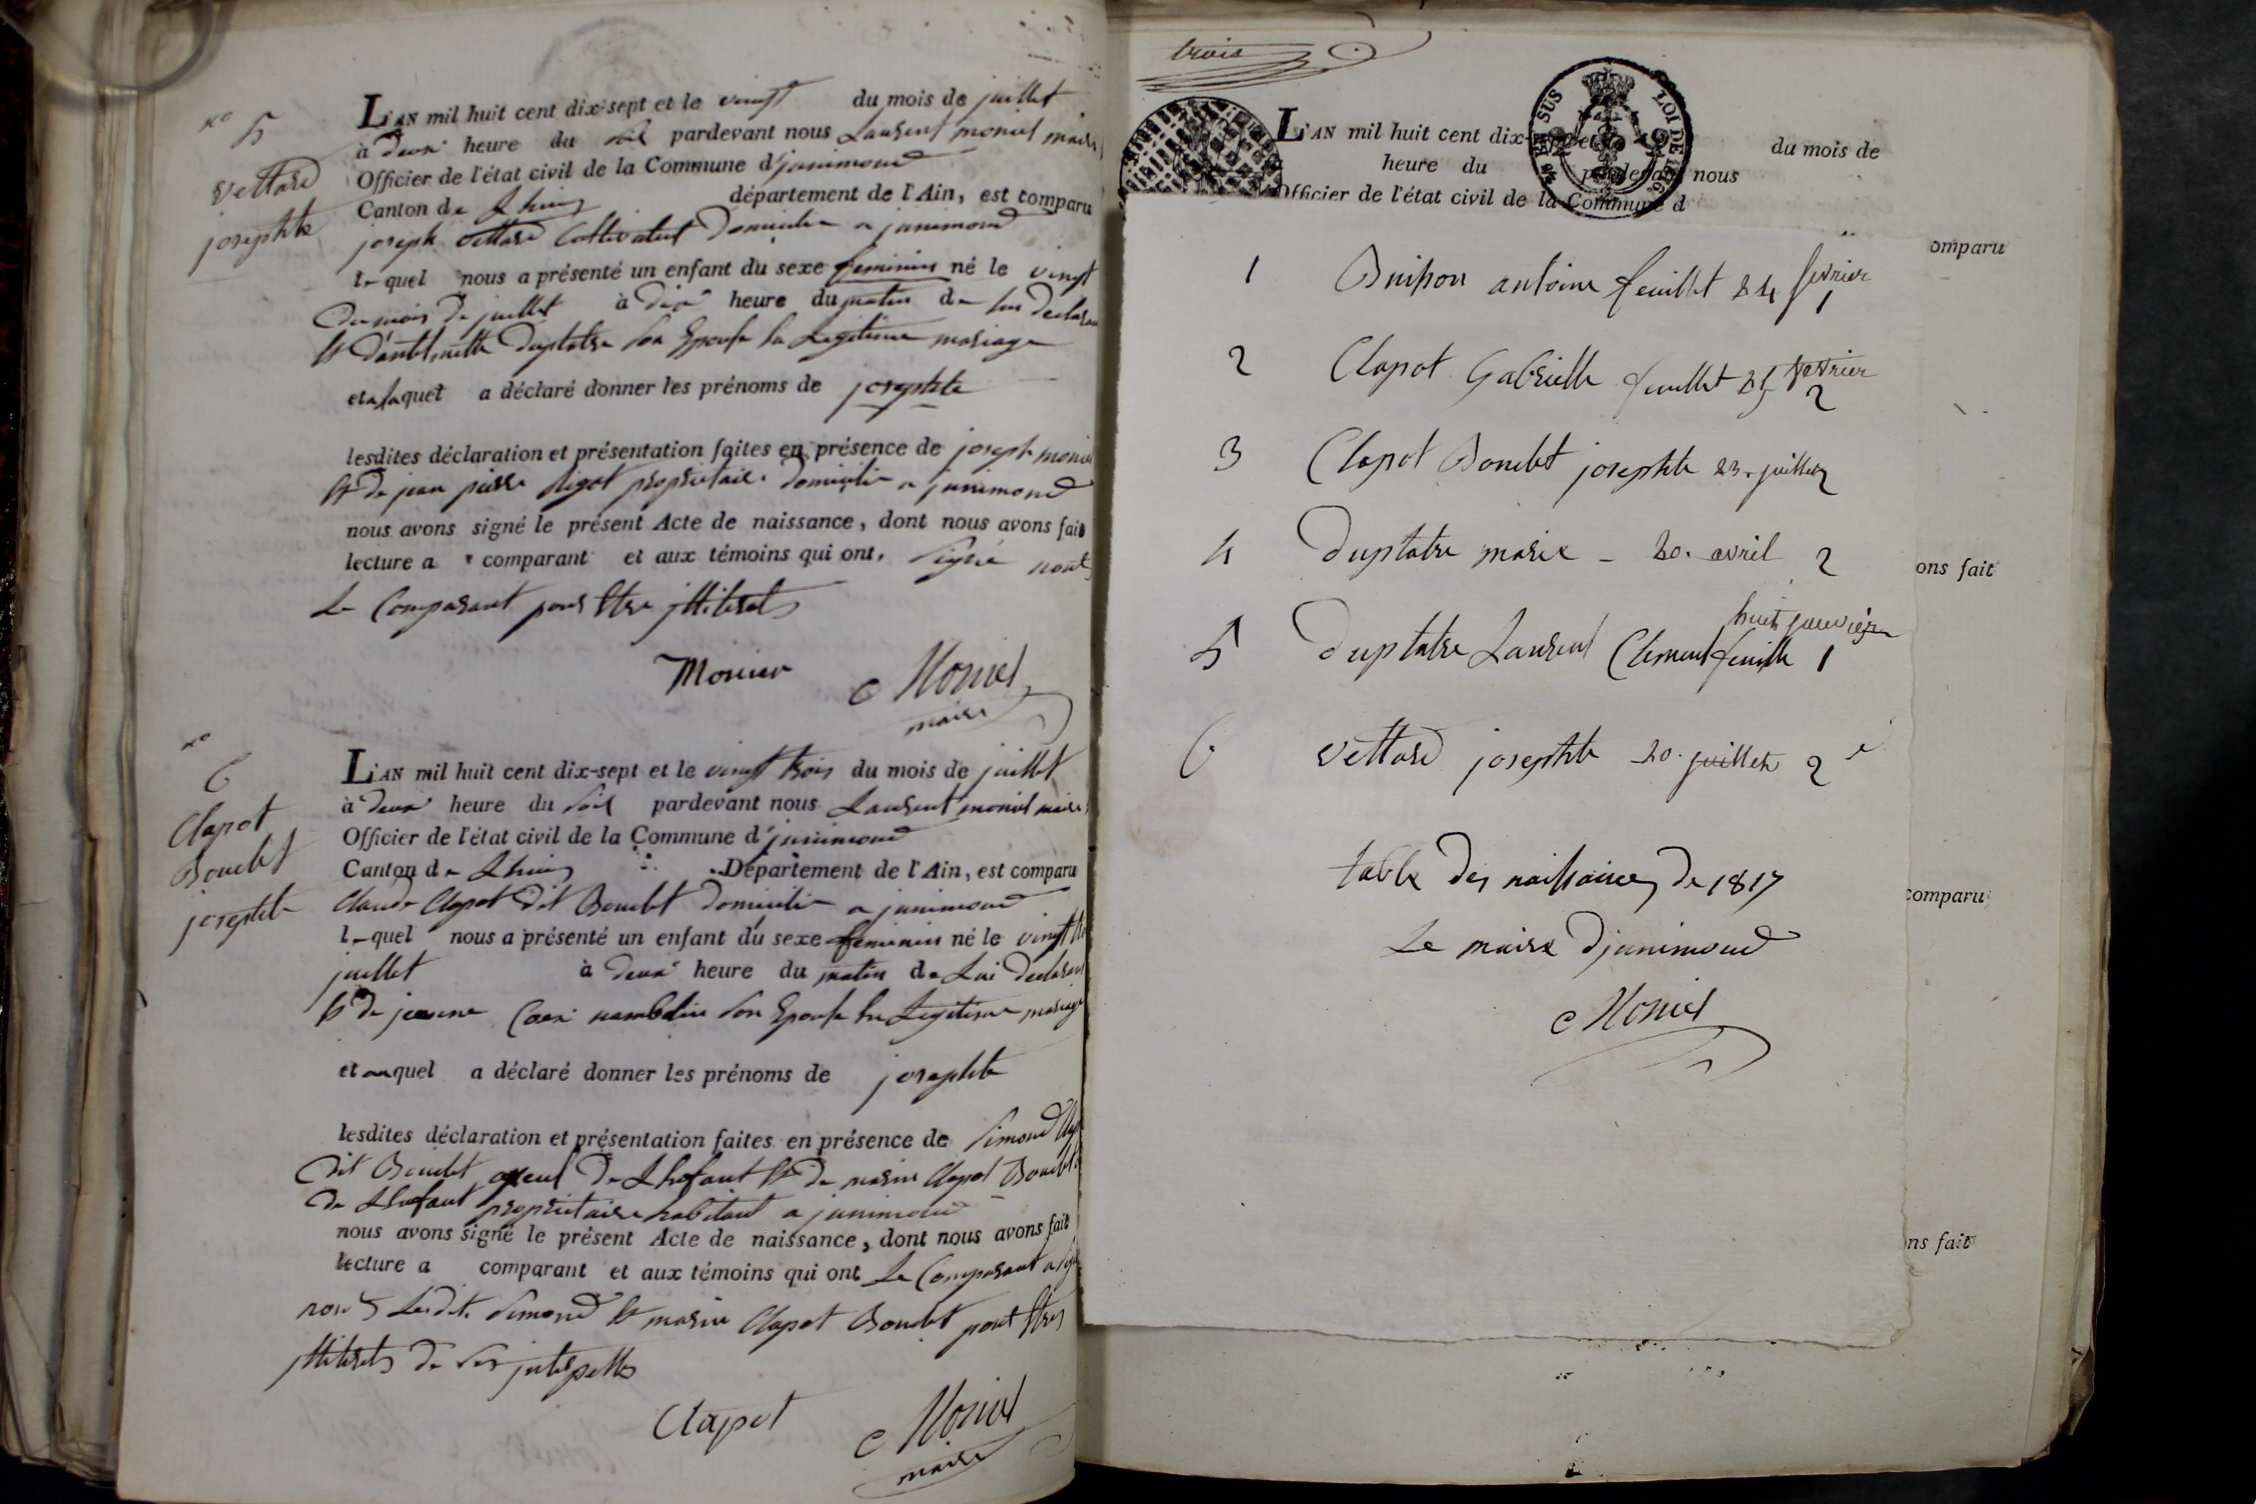 no 5
Vettard
josephte
L'AN mil huit cent dix-sept et le vingt du mois de juillet
à deux heure du soir pardevant nous Laurent monier maire
Officier de l'état civil de la Commune d'junimond
Canton de Lhuis département de l'Ain, est comparu
joseph vettard Cultivateur Domicilié a junimond
lequel nous a présenté un enfant du sexe feminin né le vingt
Du mois de juillet à dix heure du matin de lui declarant
et d'anthelmette Duplatre son Epouse en Legitime mariage
et auquel a déclaré donner les prénoms de josephte
lesdites déclaration et présentation faites en présence de joseph monier
et de jean pierre proprietaire domicilié a junimond
nous avons signé le présent Acte de naissance, dont nous avons fait
lecture a comparant et aux témoins qui ont, signé non
Le Comparant pour etre jlliteret
Monier Monier
maire
no 6
Clapot
Boudet
josephte
L'AN mil huit cent dix-sept et le vingt trois du mois de juillet
à deux heure du soir pardevant nous Laurent monier maire
Officier de l'état civil de la Commune d'junimond
Canton de Lhuis Département de l'Ain, est comparu
Claude Clapot Dit Boudet domicilié a junimond
lequel nous a présenté un enfant du sexe feminin né le vingt
juillet à deux heure du matin de Lui declarant
et de jeanne son Epouse en Legitime mariage
et auquel a déclaré donner les prénoms de josephte
lesdites déclaration et présentation faites en présence de Simond
Dit Boudet ayeul De Lhefant et De marin Clapot Boudet
De Lhefant proprietaire habitant a junimond
nous avons signé le présent Acte de naissance, dont nous avons fait
lecture a comparant et aux témoins qui ont Le Comparant
non Lesdits Simond et marin Clapot Boudet pour etre
jlliterets de ce jnterpelles
Clapot Monier
maire
trois
SUS
LOI DE 1816
L'AN mil huit cent dix-sept et le du mois de
heure du pardevant nous
Officier de l'état civil de la Commune d
omparu
ons fait
comparu
ons fait
1 Buisson antoine feuillet 24 fevrier 1
2 Clapot Gabrielle feuillet 25 fevrier 2
3 Clapot Boudet josephte 23. juillet 2
4 Duplatre marie - 20. avril 2
5 Duplatre Laurent Clement feuille 1 huit janvier
6 Vettard josephte 20. juillet 2
table des naissances de 1817
Le maire Djunimond
Monier